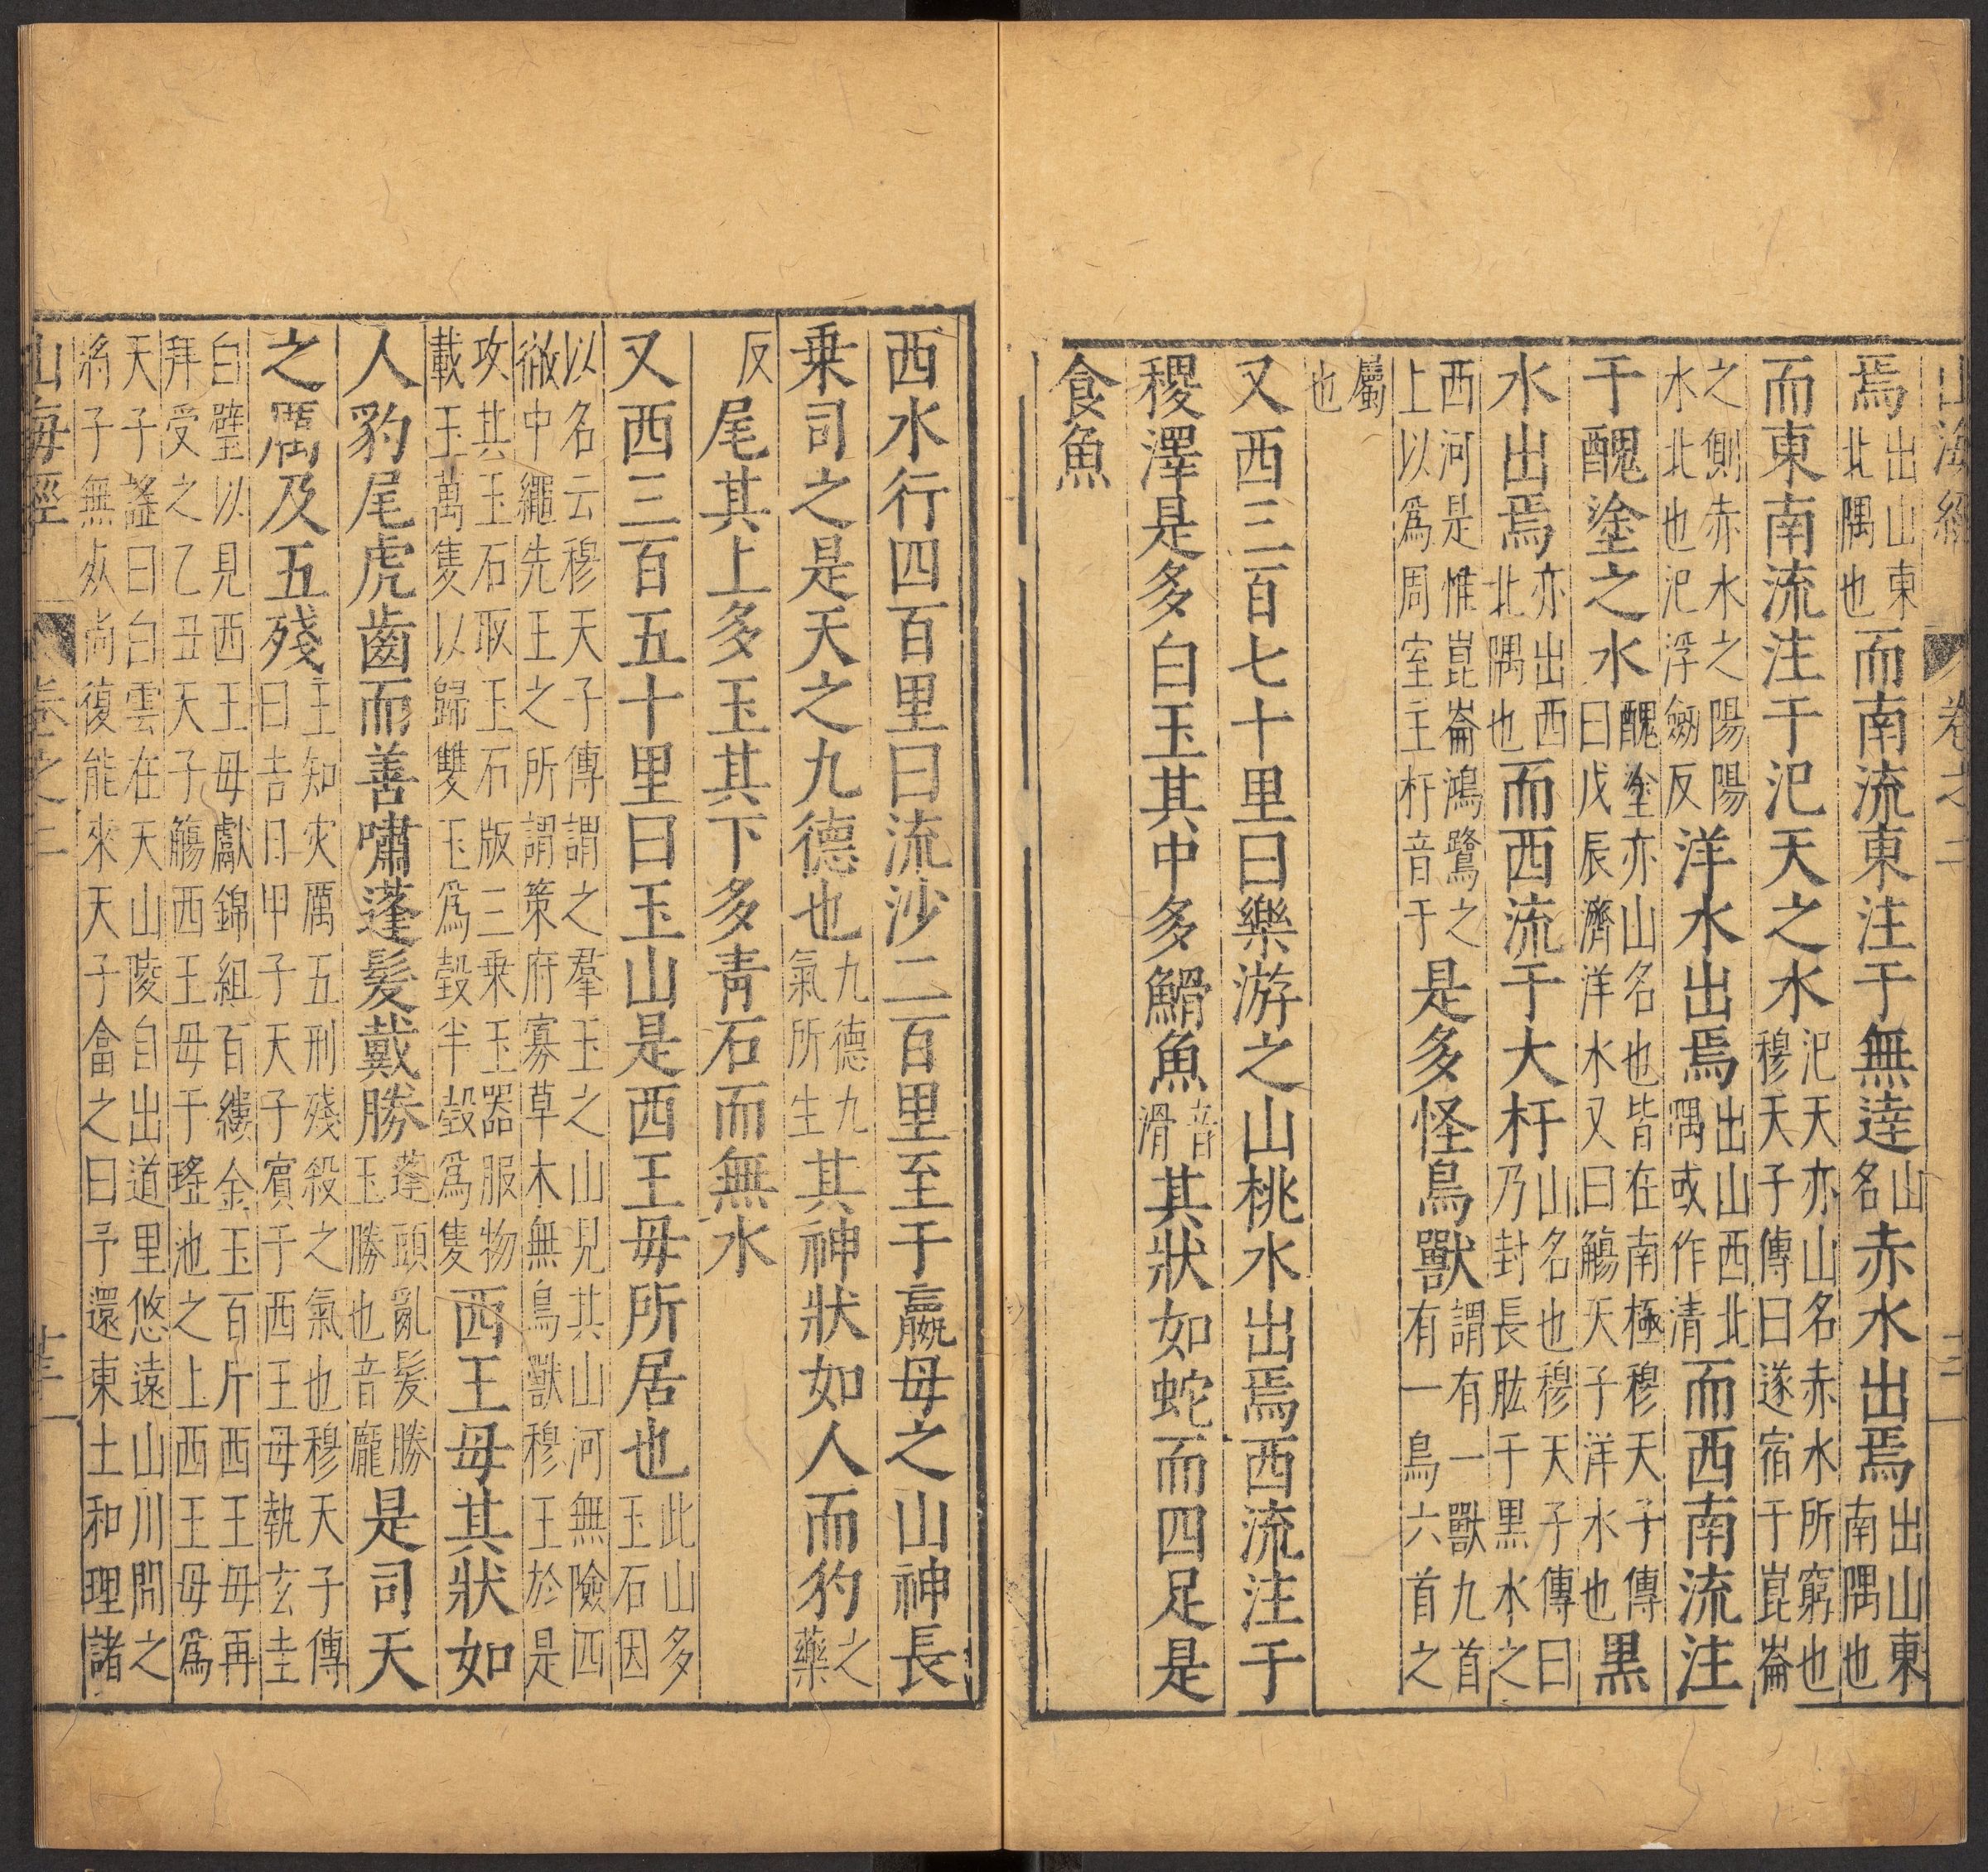 山海經 卷之二
焉出山東北隅也而南流東注于無逹山名赤水出焉出山東南隅也
而東南流注于汜天之水汜天亦山名赤水所窮也穆天子傳曰遂宿于崑崙
之側赤水之陽陽水北也汜浮劒反洋水出焉出山西北隅或作清而西南流注
于醜塗之水醜塗亦山名也皆在南極穆天子傳曰戊辰濟洋水又曰觴天子洋水也黒
水出焉亦出西北隅也而西流于大杅山名也穆天子傳曰乃封長肱于黒水之
西河是惟崑崙鴻鷺之上以爲周室主杅音于是多怪鳥獸謂有一獸九首有一鳥六首之
屬也
又西三百七十里曰樂游之山桃水出焉西流注于
稷澤是多白玉其中多䱻魚音滑其狀如蛇而四足是
食魚
西水行四百里曰流沙二百里至于蠃母之山神長
乗司之是天之九德也九德九氣所生其神狀如人而豹之藥
反尾其上多玉其下多青石而無水
又西三百五十里曰玉山是西王母所居也此山多玉石因
以名云穆天子傳謂之羣玉之山見其山河無險四徹中繩先王之所謂策府寡草木無鳥獸穆王於是
攻其玉石取玉石版三乗玉器服物載玉萬隻以歸雙玉爲瑴半瑴爲隻西王母其狀如
人豹尾虎齒而善嘯蓬髮戴勝蓬頭亂髮勝玉勝也音龐是司天
之厲及五殘主知灾厲五刑殘殺之氣也穆天子傳曰吉日甲子天子賓于西王母執玄圭
白璧以見西王母獻錦組百縷金玉百斤西王母再拜受之乙丑天子觴西王母于瑤池之上西王母爲
天子謠曰白雲在天山陵自出道里悠遠山川間之將子無死尚復能來天子畣之曰予還東土和理諸
山海經 卷之二